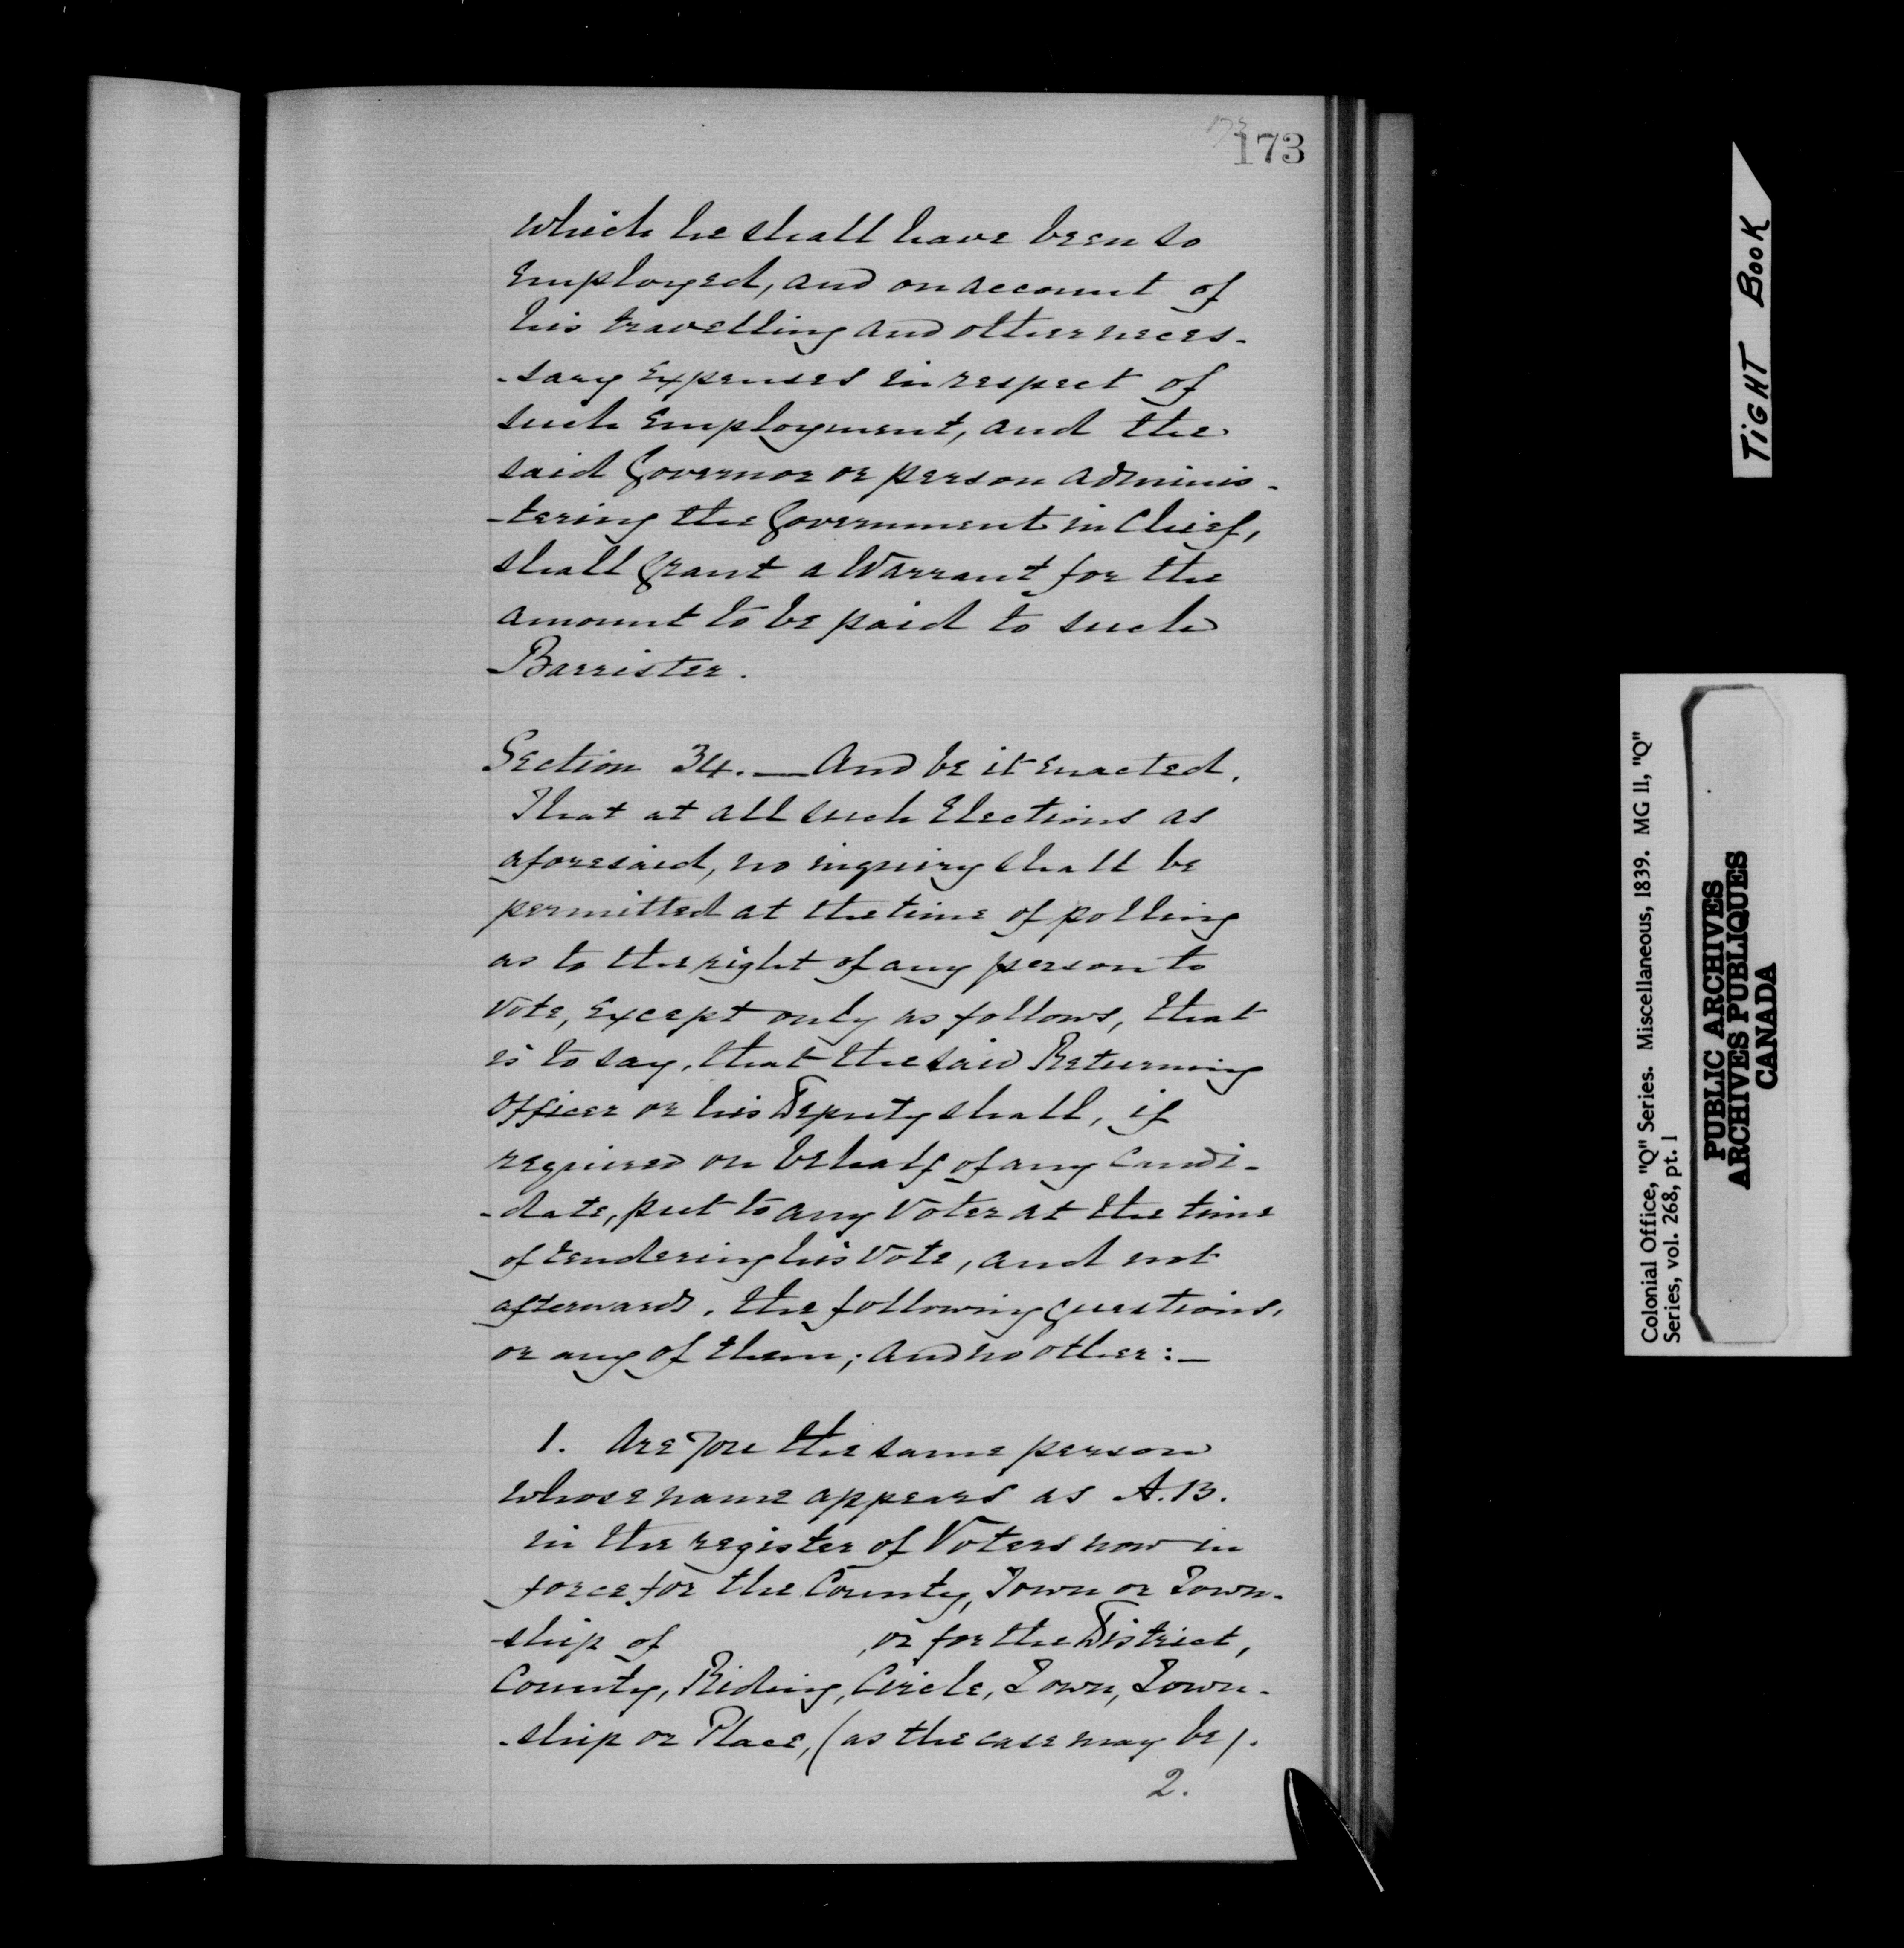 173
173
which he shall have been so
employed, and on account of
his travelling and other neces-
-sary expenses in respect of
such employment, and the
said Governor or person adminis-
-tering the Government in Chief,
shall Grant a Warrant for the
amount to be paid to such
Barrister.
Section 34. — And be it enacted,
That at all such Elections as
aforesaid, no inquiry shall be
permitted at the time of polling
as to the right of any person to
vote, except only as follows, that
is to say, that the said Returning
Officer or his Deputy shall, if
required on behalf of any Candi-
-date, put to any Voter at the time
of tendering his Vote, and not
afterwards, the following Questions,
or any of them; and no other:—
1. Are you the same person
whose name appears as A.B.
in the register of Voters now in
force for the County, Town or Town-
-ship of , or for the District,
County, Riding, Circle, Town, Town-
-ship or Place, (as the case may be).
2.
TIGHT BOOK
Colonial Office, "Q" Series. Miscellaneous, 1839. MG 11, "Q"
Series, vol. 268, pt. 1
PUBLIC ARCHIVES
ARCHIVES PUBLIQUES
CANADA